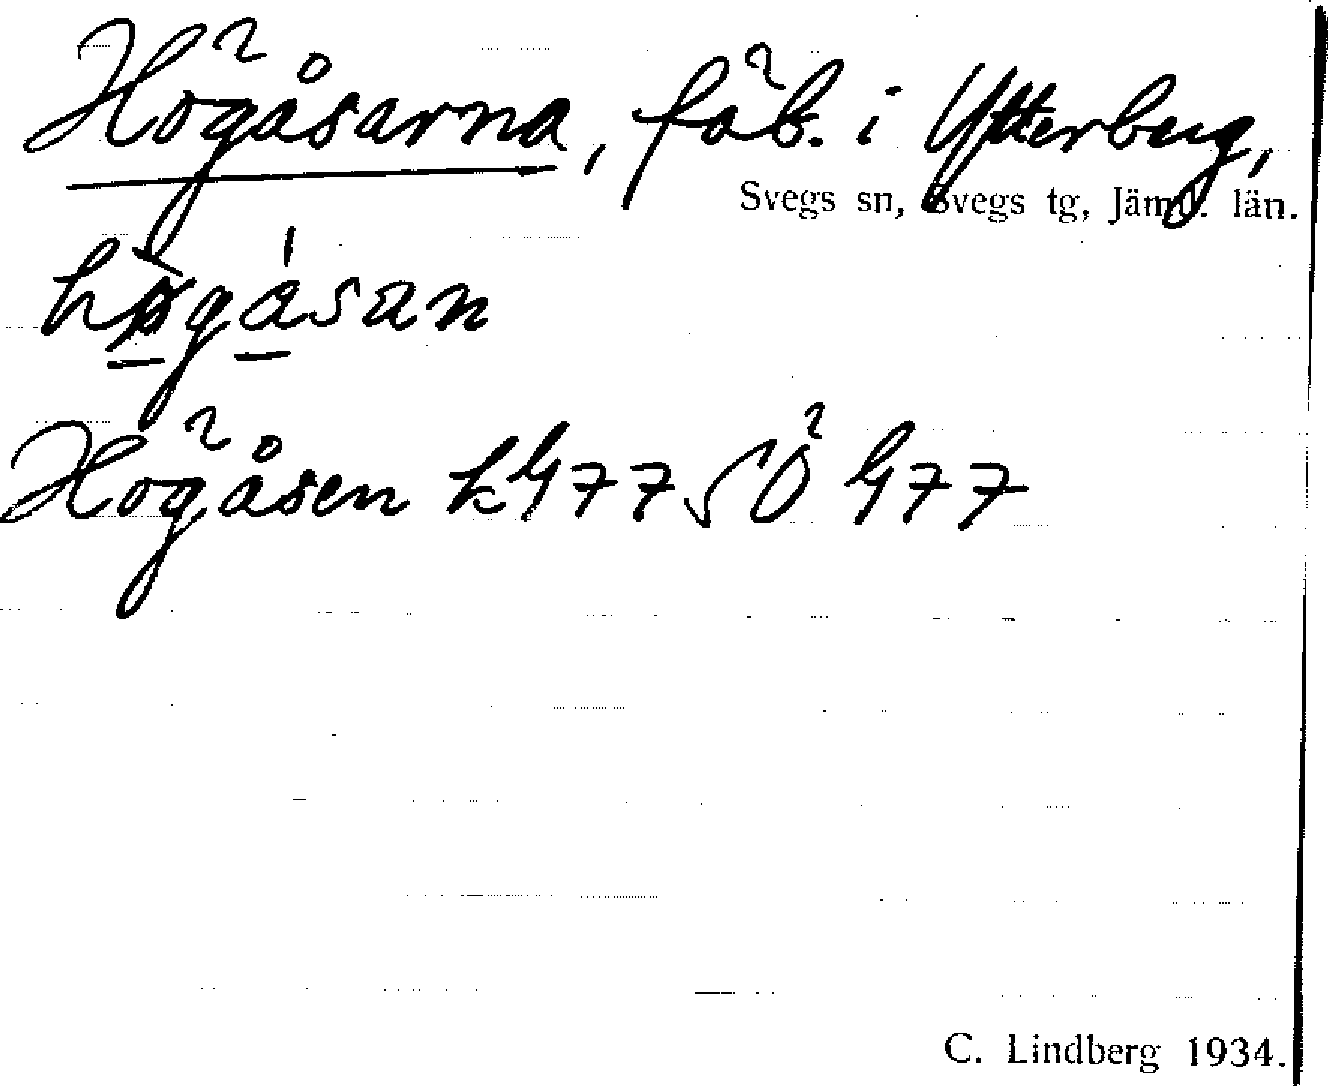 Högåsarna, fäb. i Ytterberg,
Svegs sn, Svegs tg, Jämtl. län.
högåsan
Högåsen k 477 SÖ 477
C. Lindberg 1934.